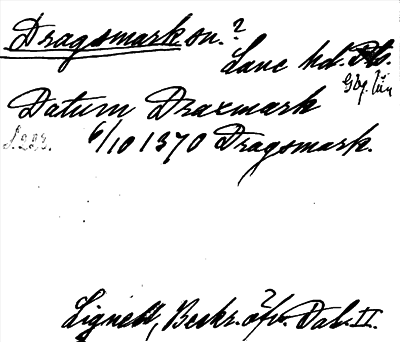 Dragsmark sn.?
Lane hd.
Gbg. län
Datum Draxmark
S. 222. 6/10 1370 Dragsmark.
Lignell, Beskr. öfv. Dal. II.